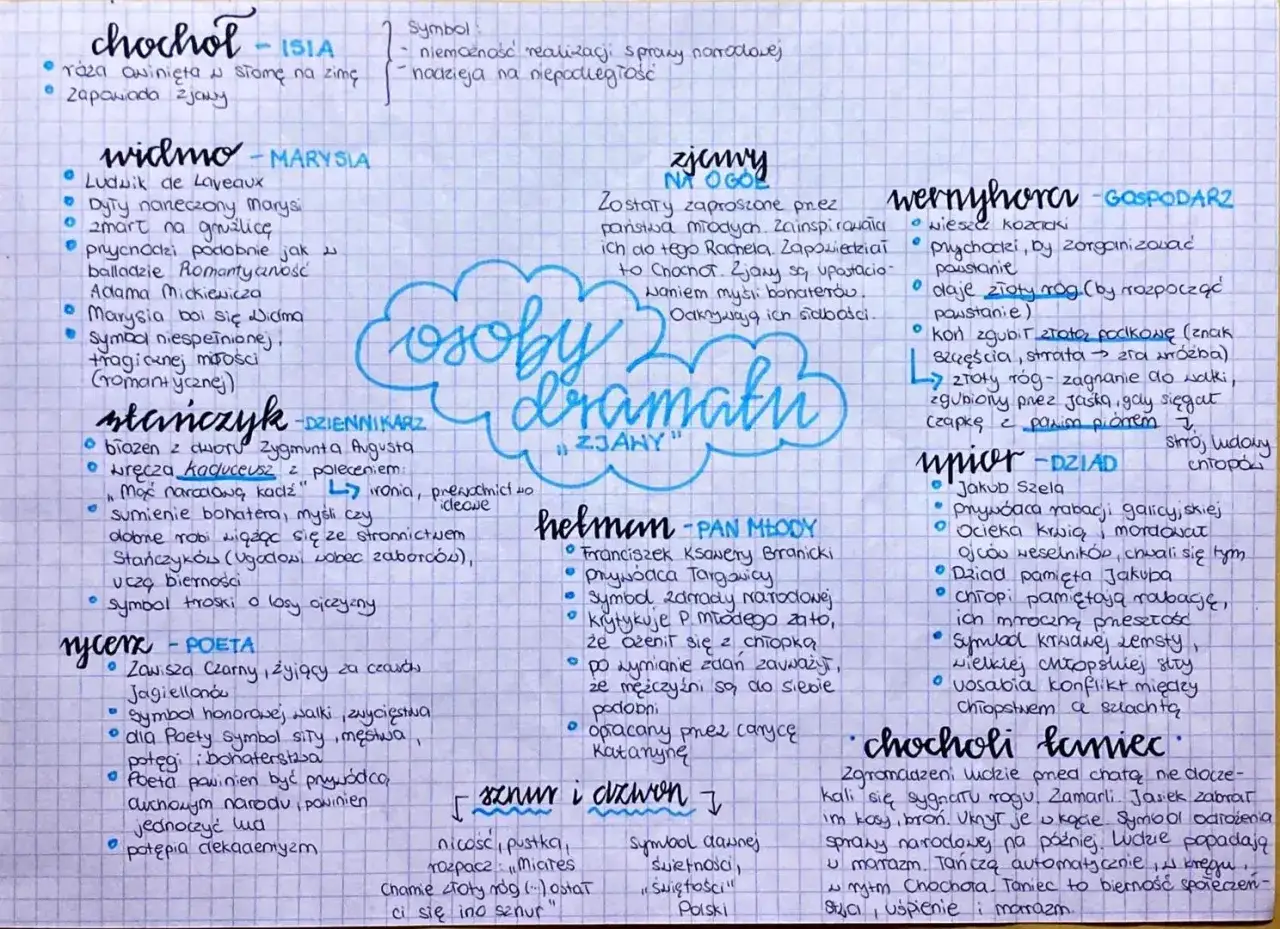 chochoł - ISIA
róża owinięta w słomę na zimę
zapowiada zjawy
symbol:
- niemożność realizacji sprawy narodowej
- nadzieja na niepodległość
widmo - MARYSIA
Ludwik de Laveaux
były narzeczony Marysi
zmarł na gruźlicę
przychodzi podobnie jak w
balladzie Romantyczność
Adama Mickiewicza
Marysia boi się widma
symbol niespełnionej,
tragicznej miłości
(romantycznej)
zjawy
NA OGÓŁ
Zostały zaproszone przez
państwa młodych. Zainspirowała
ich do tego Rachela. Zapowiedział
to Chochoł. Zjawy są upostacio-
waniem myśli bohaterów.
Odkrywają ich słabości.
wernyhora - GOSPODARZ
wieszcz kozacki
przychodzi, by zorganizować
powstanie
daje złoty róg (by rozpocząć
powstanie)
koń zgubił złotą podkowę (znak
szczęścia, strata → zła wróżba)
↳ złoty róg - zagrzanie do walki,
zgubiony przez Jaśka, gdy sięgał
czapkę z pawim piórem ↓
strój ludowy
chłopów
osoby
dramatu
"ZJAWY"
stańczyk - DZIENNIKARZ
błazen z dworu Zygmunta Augusta
wręcza kaduceusz z poleceniem:
„Mąć narodową kadź" ↳ ironia, przewodnictwo
ideowe
sumienie bohatera, myśli czy
dobrze robi wiążąc się ze stronnictwem
Stańczyków (ugodowi wobec zaborców),
uczą bierności
symbol troski o losy ojczyzny
hetman - PAN MŁODY
Franciszek Ksawery Branicki
przywódca Targowicy
symbol zdrady narodowej
krytykuje P. młodego za to,
że ożenił się z chłopką
po wymianie zdań zauważył,
że mężczyźni są do siebie
podobni
opłacany przez carycę
Katarzynę
upiór - DZIAD
Jakub Szela
przywódca rabacji galicyjskiej
Ocieka krwią, mordował
ojców weselników, chwali się tym
Dziad pamięta Jakuba
chłopi pamiętają rabację,
ich mroczną przeszłość
Symbol krwawej zemsty,
wielkiej chłopskiej siły
uosabia konflikt między
chłopstwem a szlachtą
rycerz - POETA
Zawisza Czarny, żyjący za czasów
Jagiellonów
symbol honorowej walki, zwycięstwa
dla Poety symbol siły, męstwa,
potęgi i bohaterstwa
Poeta powinien być przywódcą
duchowym narodu, powinien
jednoczyć lud
potępia dekadentyzm
sznur i dzwon
nicość, pustka,
rozpacz: „Miałeś
Chamie złoty róg (...) ostał
ci się ino sznur"
symbol dawnej
świetności,
„świętości"
Polski
chocholi taniec
Zgromadzeni ludzie przed chatą nie docze-
kali się sygnału rogu. Zamarli. Jasiek zabrał
im kosy, broń. Ukrył je w kącie. Symbol odłożenia
sprawy narodowej na później. Ludzie popadają
w marazm. Tańczą automatycznie, w kręgu,
w rytm Chochoła. Taniec to bierność społeczeń-
stwa, uśpienie i marazm.